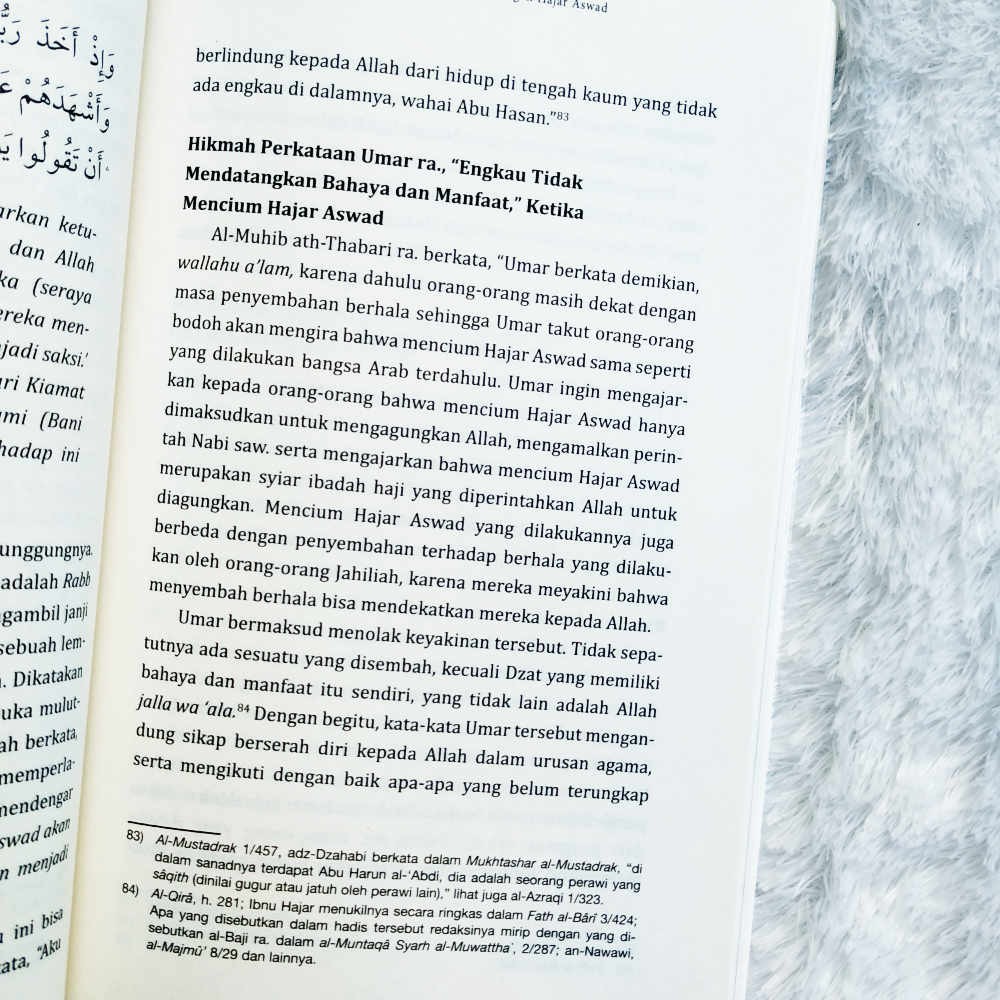 وَإِذْ أَخَذَ
وَأَشْهَدَهُمْ
أَنْ تَقُولُوا
ketu-
dan Allah
(seraya
men-
saksi.'
Kiamat
(Bani
ini
adalah Rabb
janji
sebuah lem-
Dikatakan
mulut-
berkata,
mendengar
akan
menjadi
ini bisa
"Aku
Hajar Aswad
berlindung kepada Allah dari hidup di tengah kaum yang tidak
ada engkau di dalamnya, wahai Abu Hasan."83
Hikmah Perkataan Umar ra., "Engkau Tidak
Mendatangkan Bahaya dan Manfaat," Ketika
Mencium Hajar Aswad
Al-Muhib ath-Thabari ra. berkata, "Umar berkata demikian,
wallahu a'lam, karena dahulu orang-orang masih dekat dengan
masa penyembahan berhala sehingga Umar takut orang-orang
bodoh akan mengira bahwa mencium Hajar Aswad sama seperti
yang dilakukan bangsa Arab terdahulu. Umar ingin mengajar-
kan kepada orang-orang bahwa mencium Hajar Aswad hanya
dimaksudkan untuk mengagungkan Allah, mengamalkan perin-
tah Nabi saw. serta mengajarkan bahwa mencium Hajar Aswad
merupakan syiar ibadah haji yang diperintahkan Allah untuk
diagungkan. Mencium Hajar Aswad yang dilakukannya juga
berbeda dengan penyembahan terhadap berhala yang dilaku-
kan oleh orang-orang Jahiliah, karena mereka meyakini bahwa
menyembah berhala bisa mendekatkan mereka kepada Allah.
Umar bermaksud menolak keyakinan tersebut. Tidak sepa-
tutnya ada sesuatu yang disembah, kecuali Dzat yang memiliki
bahaya dan manfaat itu sendiri, yang tidak lain adalah Allah
jalla wa 'ala.84 Dengan begitu, kata-kata Umar tersebut mengan-
dung sikap berserah diri kepada Allah dalam urusan agama,
serta mengikuti dengan baik apa-apa yang belum terungkap
83) Al-Mustadrak 1/457, adz-Dzahabi berkata dalam Mukhtashar al-Mustadrak, "di
dalam sanadnya terdapat Abu Harun al-'Abdi, dia adalah seorang perawi yang
sâqith (dinilai gugur atau jatuh oleh perawi lain)." lihat juga al-Azraqi 1/323.
84) Al-Qirâ, h. 281; Ibnu Hajar menukilnya secara ringkas dalam Fath al-Bârî 3/424;
Apa yang disebutkan dalam hadis tersebut redaksinya mirip dengan yang di-
sebutkan al-Baji ra. dalam al-Muntaqâ Syarh al-Muwattha', 2/287; an-Nawawi,
al-Majmû' 8/29 dan lainnya.